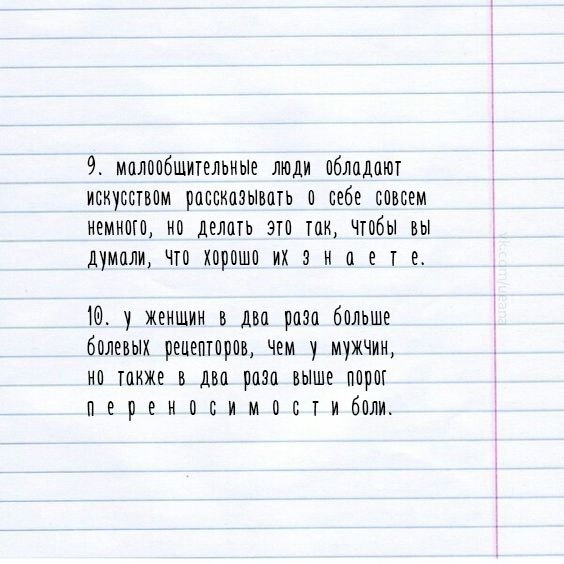 9. малообщительные люди обладают
искусством рассказывать о себе совсем
немного, но делать это так, чтобы вы
думали, что хорошо их з н а е т е.
10. у женщин в два раза больше
болевых рецепторов, чем у мужчин,
но также в два раза выше порог
п е р е н о с и м о с т и боли.